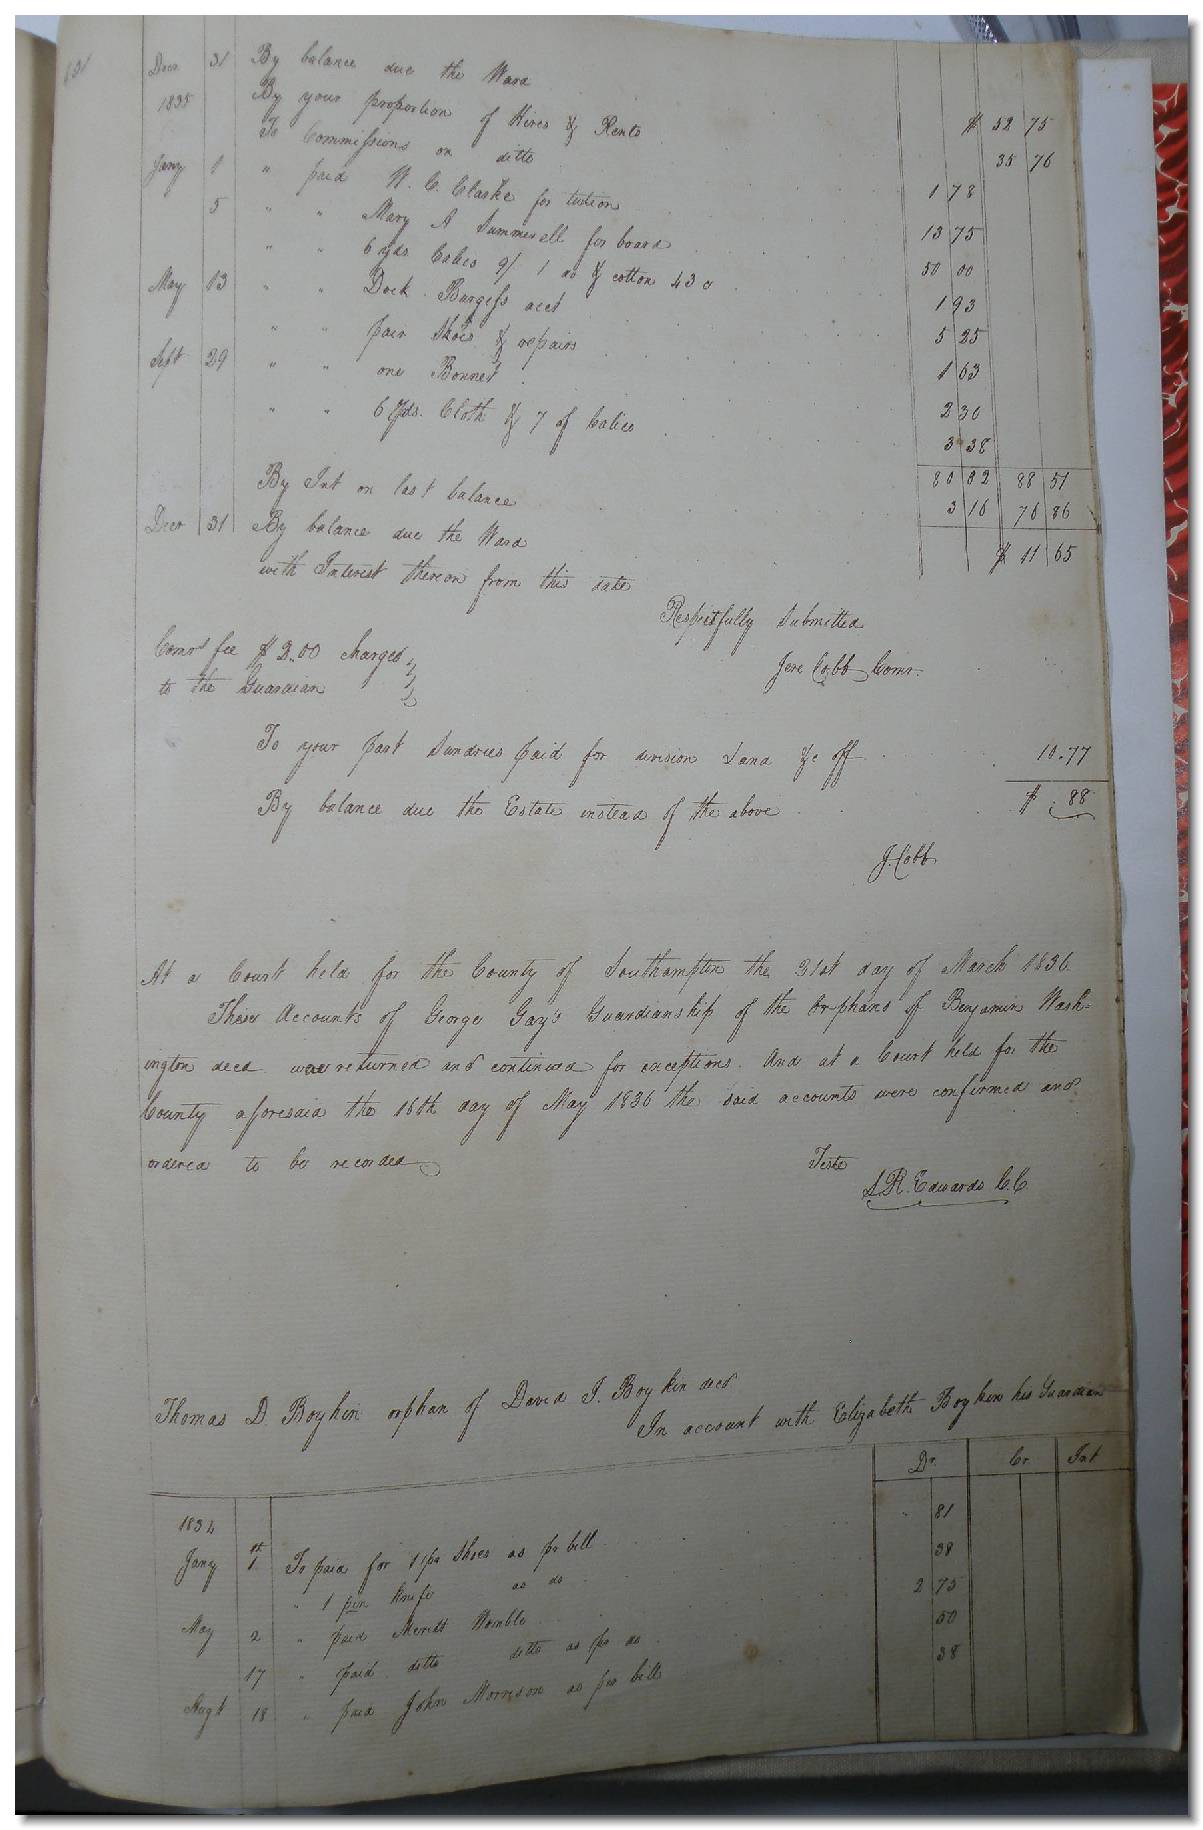 131
Decr 31 By balance due the Ward $ 52 75
1835 By your proportion of Hires & Rents 35 76
To Commissions on ditto 1 78
Jany 1 " paid W. C. Clarke for tuition 13 75
5 " " Mary A Summerell for board 50 00
" " 6 yds Calico 9/ 1 do & cotton 43 c 1 93
May 13 " " Doct. Burgess acct 5 25
" " pair Shoes & repairs 1 63
Sept 29 " " one Bonnet 2 30
" " 6 Yds. Cloth & 7 of Calico 3 38
80 02 88 51
By Int on last balance 3 16 76 86
Decr 31 By balance due the Ward $ 11 65
with Interest thereon from this date
Respectfully Submitted
Jere Cobb Comr.
Comrs fee $ 2.00 charged
to the Guardian
To your part Sundries paid for division Land &c off 10.77
By balance due the Estate instead of the above $ .88
J. Cobb
At a Court held for the County of Southampton the 31st day of March 1836
These Accounts of George Gay's Guardianship of the Orphans of Benjamin Wash-
ington decd were returned and continued for exceptions. And at a Court held for the
County aforesaid the 16th day of May 1836 the said accounts were confirmed and
ordered to be recorded
Teste
L R. Edwards C.C.
Thomas D. Boykin orphan of David J. Boykin decd
In account with Elizabeth Boykin his Guardian
Dr. Cr. Int
1834
Jany 1st To paid for 1 pr Shoes as pr bill 81
" 1 pen knife as do 38
May 2 " paid Merit Womble 2 75
17 " paid ditto ditto as pr do 50
Augt 18 " paid John Morrison as per bill 38